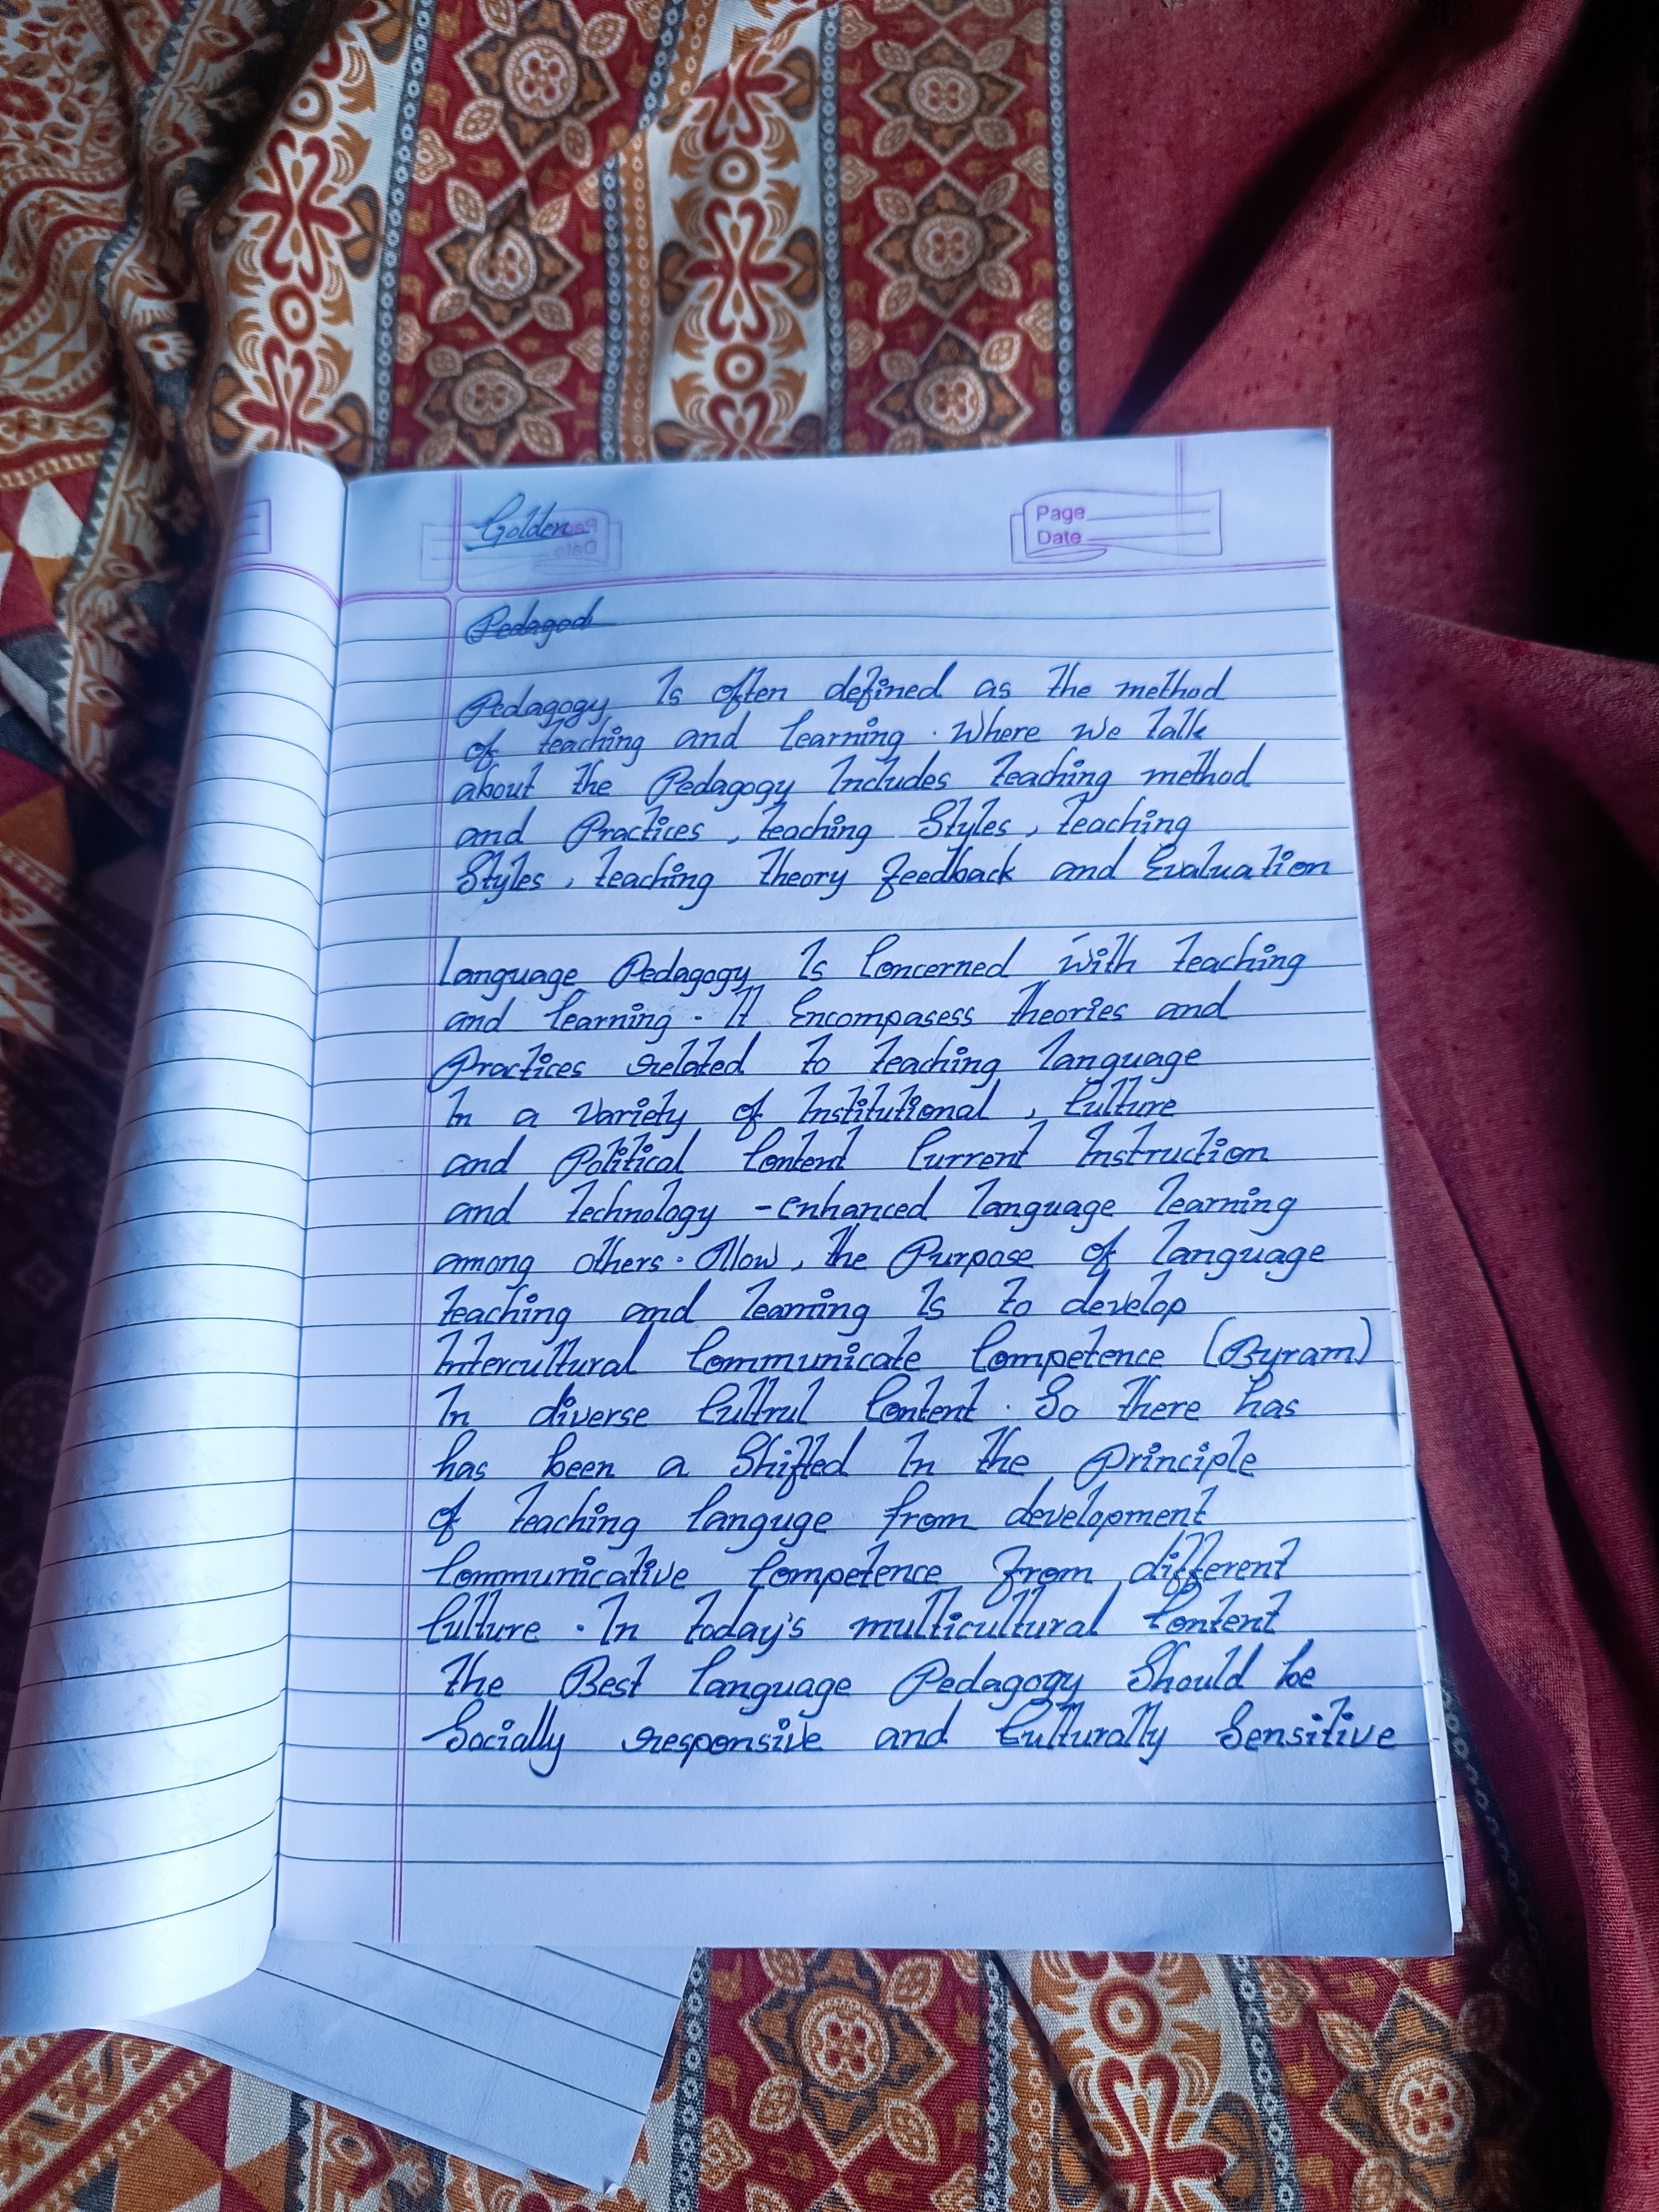 Golden
Page
Date
Pedagod
Pedagogy Is often defined as the method
of teaching and learning. Where we talk
about the Pedagogy Includes teaching method
and Practices, teaching Styles, teaching
Styles, teaching theory feedback and Evaluation
Language Pedagogy Is Concerned with teaching
and learning. It Encompasess theories and
Practices related to teaching language
In a Variety of Institutional, Culture
and Political Content Current Instruction
and technology -enhanced language learning
among others. Allow, the Purpose of language
teaching and learning Is to develop
Intercultural Communicate Competence (Byram)
In diverse Cultrul Content. So there has
has been a Shifted In the Principle
of teaching languge from development
Communicative Competence From different
Culture. In today's multicultural Content
the Best language Pedagogy Should be
Socially responsive and Culturally Sensitive